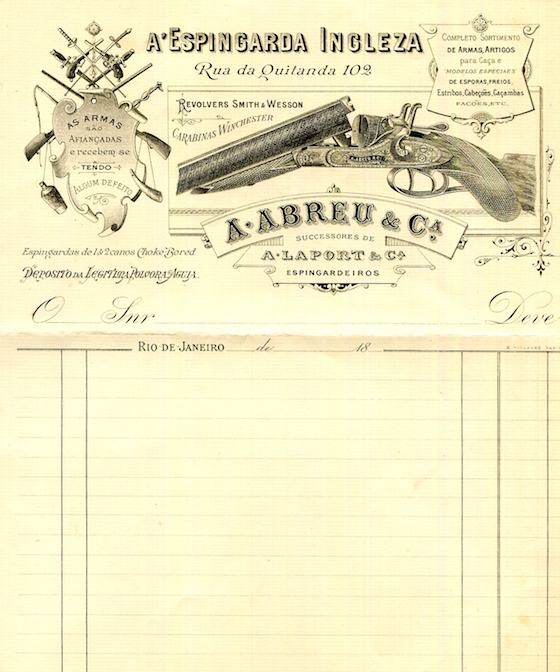 A' ESPINGARDA INGLEZA
Rua da Quitanda 102
REVOLVERS SMITH & WESSON
CARABINAS WINCHESTER
COMPLETO SORTIMENTO
DE ARMAS, ARTIGOS
para Caça e
"MODELOS ESPECIAES"
DE ESPORAS, FREIOS,
Estribos, Cabeções, Caçambas
FACÕES, ETC.
AS ARMAS
SÃO
AFIANÇADAS
e recebem-se
TENDO
ALGUM DEFEITO
A. ABREU & CA
SUCCESSORES DE
A. LAPORT & CA
ESPINGARDEIROS
Espingardas de 1 & 2 canos Choke-Bored
DEPOSITO DA LEGITIMA POLVORA AGUIA.
O Snr Deve
RIO DE JANEIRO de 18